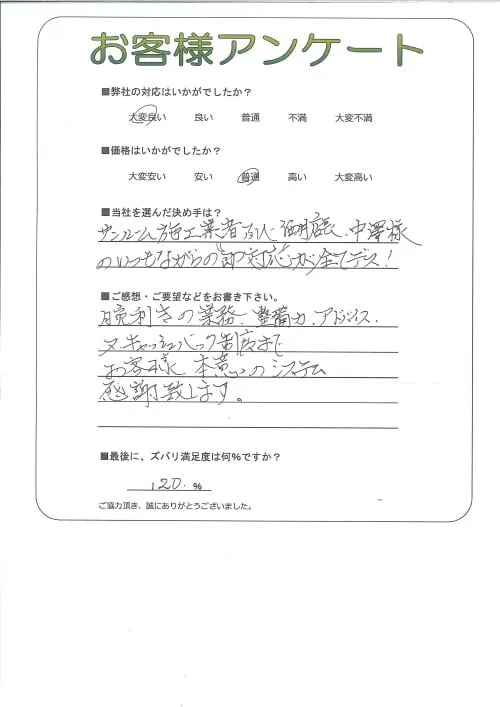 お客様アンケート
■弊社の対応はいかがでしたか？
大変良い 良い 普通 不満 大変不満
■価格はいかがでしたか？
大変安い 安い 普通 高い 大変高い
■当社を選んだ決め手は？
サンルーム施工業者 店長、中澤様
のいつもながらの即対応が全てデス！
■ご感想・ご要望などをお書き下さい。
腕利きの業務、整備力、アドバイス、
又キャッシュバック制度まで
お客様本意のシステム
感謝致します。
■最後に、ズバリ満足度は何％ですか？
120.％
ご協力頂き、誠にありがとうございました。